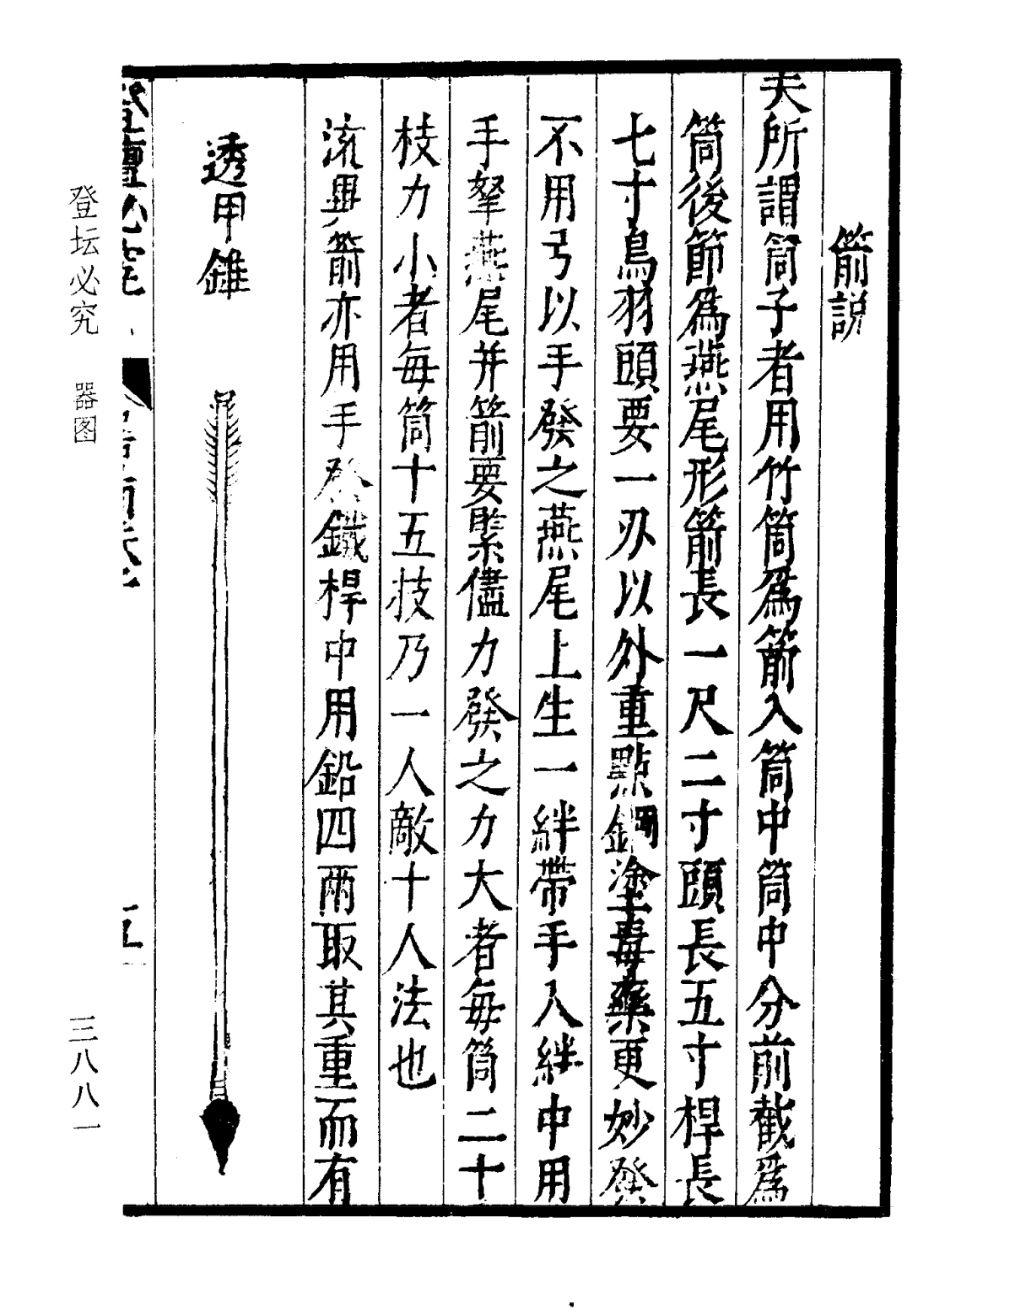 箭説
夫所謂筒子者用竹筒爲箭入筒中筒中分前截爲
筒後節爲燕尾形箭長一尺二寸頭長五寸桿長
七寸鳥羽頭要一刅以外重點鋼塗毒藥更妙發
不用弓以手發之燕尾上生一絆帶手入絆中用
手拏燕尾并箭要緊儘力發之力大者每筒二十
枝力小者每筒十五技乃一人敵十人法也
流興箭亦用手發鐵桿中用鉛四兩取其重而有
透甲錐
登壇必究
五
登坛必究 器图
三八八一